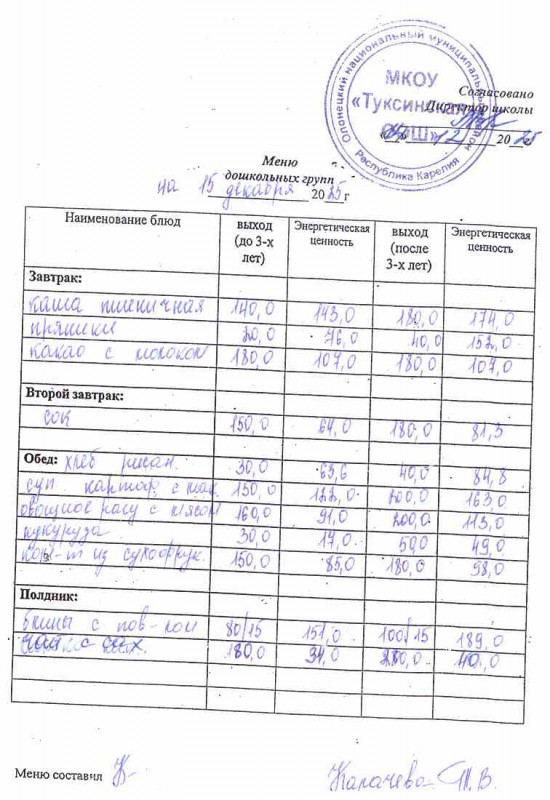 Олонецкий национальный муниципальный район
Республика Карелия
МКОУ
«Туксинская
СОШ»
Согласовано
Директор школы
12 2025
Меню
дошкольных групп
на 15 декабря 2025 г
Наименование блюд выход (до 3-х лет) Энергетическая ценность выход (после 3-х лет) Энергетическая ценность
Завтрак:
каша пшеничная 140,0 143,0 180,0 174,0
пряники 20,0 76,0 40,0 152,0
какао с молоком 180,0 107,0 180,0 107,0
Второй завтрак:
сок 150,0 64,0 180,0 81,3
Обед: хлеб ржан. 30,0 63,6 40,0 84,8
суп картоф. с мак. 150,0 122,0 200,0 163,0
овощное рагу с мясом 160,0 91,0 200,0 113,0
кукуруза 30,0 17,0 50,0 49,0
комп-т из сухофрук. 150,0 85,0 180,0 98,0
Полдник:
блины с пов-лом 80/15 151,0 100/15 189,0
чай с сах. 180,0 34,0 40,0
Меню составил Капачева Т.В.